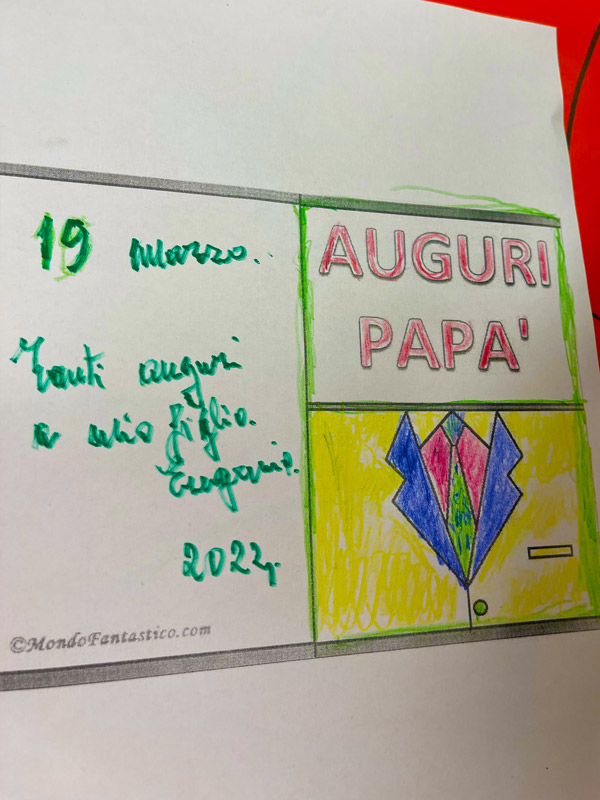 19 marzo.
Tanti auguri
a mio figlio.
Eugenio.
2022.
©MondoFantastico.com
AUGURI
PAPA'